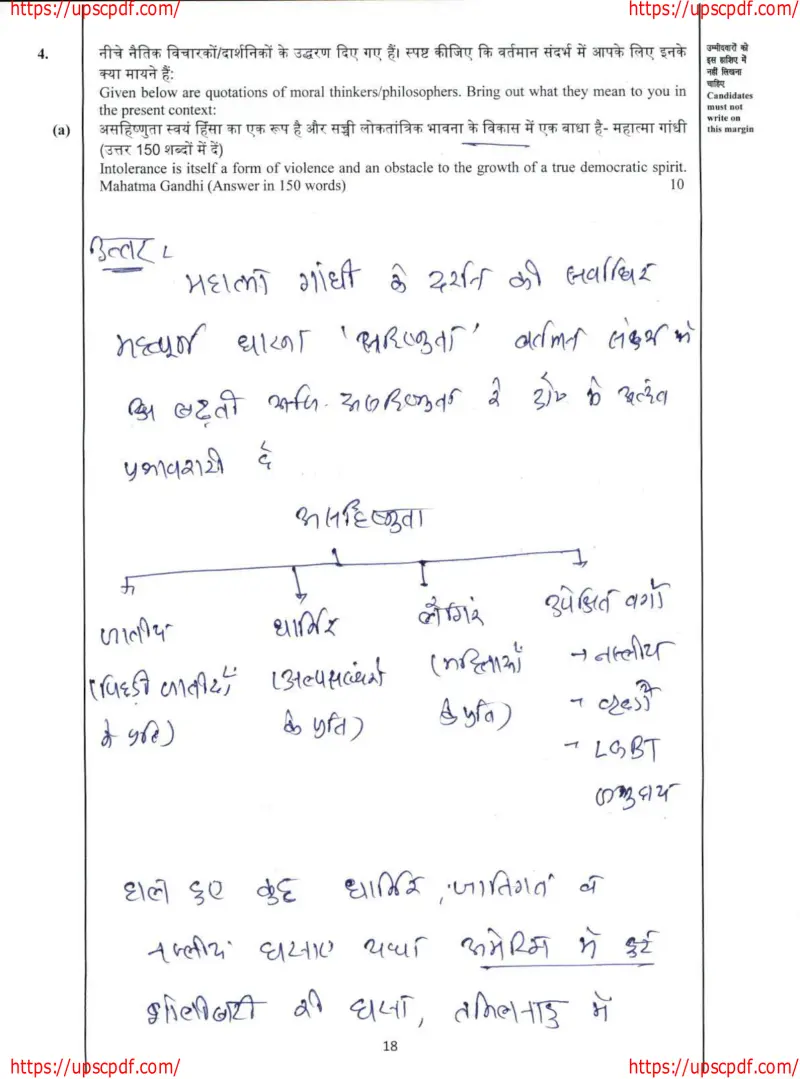 https://upscpdf.com/ https://upscpdf.com/
4. नीचे नैतिक विचारकों/दार्शनिकों के उद्धरण दिए गए हैं। स्पष्ट कीजिए कि वर्तमान संदर्भ में आपके लिए इनके
क्या मायने हैं:
Given below are quotations of moral thinkers/philosophers. Bring out what they mean to you in
the present context:
(a) असहिष्णुता स्वयं हिंसा का एक रूप है और सच्ची लोकतांत्रिक भावना के विकास में एक बाधा है- महात्मा गांधी
(उत्तर 150 शब्दों में दें)
Intolerance is itself a form of violence and an obstacle to the growth of a true democratic spirit.
Mahatma Gandhi (Answer in 150 words) 10
उम्मीदवारों को
इस हाशिए में
नहीं लिखना
चाहिए
Candidates
must not
write on
this margin
उत्तर
महात्मा गांधी के दर्शन की सर्वाधिक
महत्वपूर्ण धारणा 'सहिष्णुता' वर्तमान संदर्भ में
बढ़ती असहिष्णुता के दौर में अत्यंत
प्रभावशाली है
असहिष्णुता
जातीय धार्मिक लैंगिक उपेक्षित वर्गों
(पिछड़ी जातीयों (अल्पसंख्यकों (महिलाओं → नस्लीय
के प्रति) के प्रति) के प्रति)
→ LGBT
समुदाय
हाल हुए कुछ धार्मिक, जातिगत व
नस्लीय घटनाए यथा अमेरिका में हुई
गोलीबारी की घटना, तमिलनाडु में
18
https://upscpdf.com/ https://upscpdf.com/